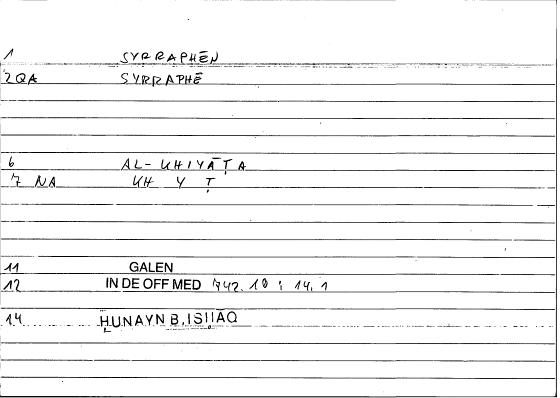 1 SYRRAPHĒN
2 QA SYRRAPHĒ
6 AL-KHIYĀṬA
7 NA KH Y Ṭ
11 GALEN
12 IN DE OFF MED 742.10 ; 14.1
14 ḤUNAYN B. ISḤĀQ